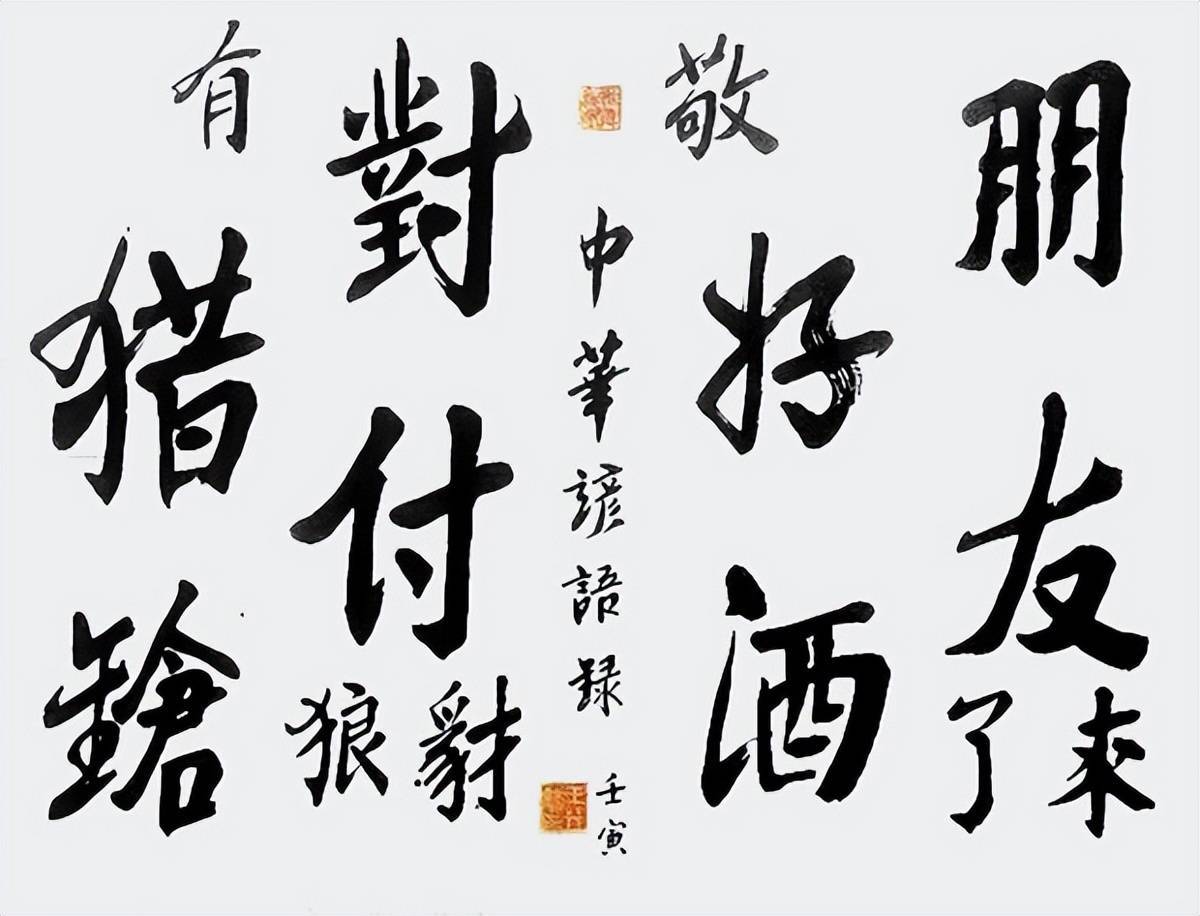 朋友來了
敬好酒
中華諺語録
壬寅
對付豺狼
有猎鎗